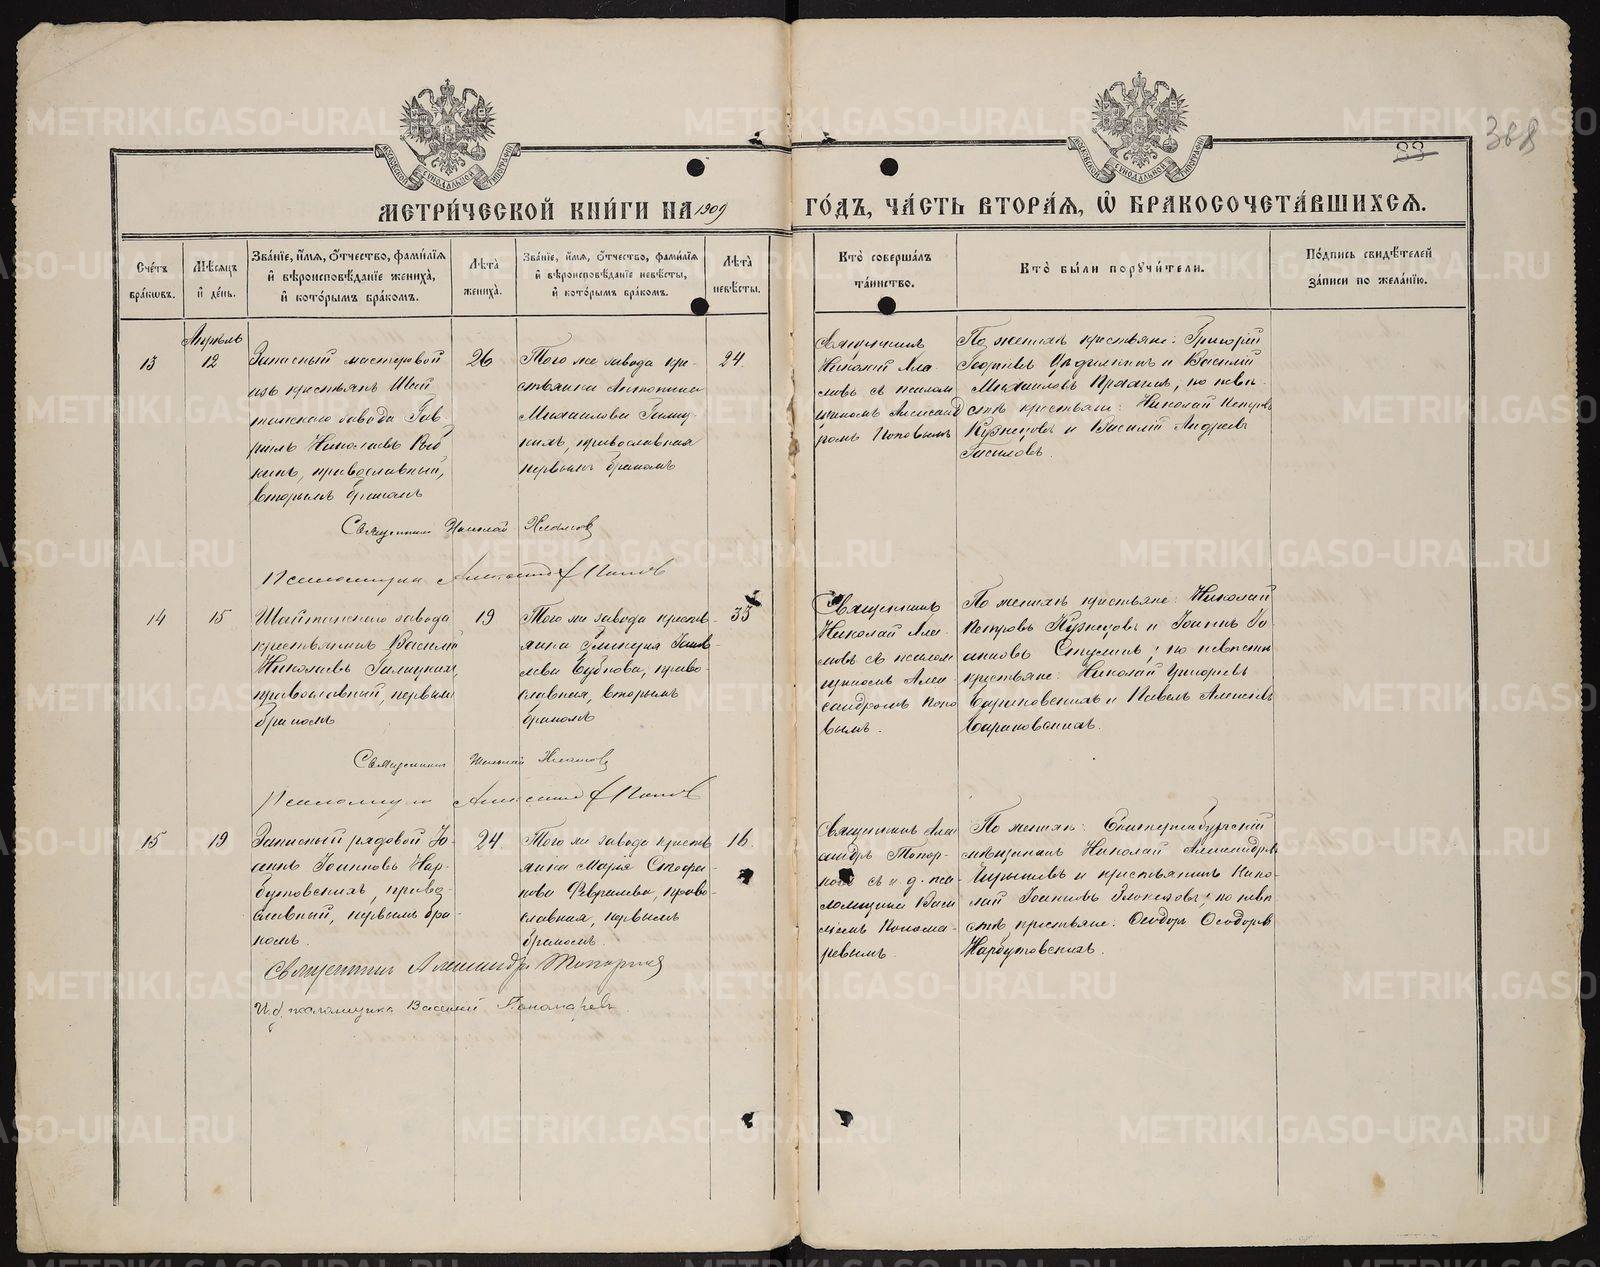 368
23
МОСКОВСКОЙ СУНОДАЛЬНОЙ ТИПОГРАФІИ
МОСКОВСКОЙ СУНОДАЛЬНОЙ ТИПОГРАФІИ
МЕТРИ́ЧЕСКОЙ КНИ́ГИ НА 1909 ГО́ДЪ, ЧА́СТЬ ВТОРА́Я, Ѡ҆ БРАКОСОЧЕТА́ВШИХСЯ.
Сче́тъ бра́ковъ.
Мѣ́сяцъ и҆ де́нь.
Зва́нїе, и҆́мя, ѻ҆́тчество, фами́лїя и҆ вѣроисповѣ́данїе жениха̀, и҆ кото́рымъ бра́комъ.
Лѣ́та жениха̀.
Зва́нїе, и҆́мя, ѻ҆́тчество, фами́лїя и҆ вѣроисповѣ́данїе невѣ́сты, и҆ кото́рымъ бра́комъ.
Лѣ́та невѣ́сты.
Кто̀ соверша́лъ та́инство.
Кто̀ бы́ли поручи́тели.
По́дпись свидѣ́телей за́писи по жела́нїю.
13
Апрѣль
12
Запасный мастеровой
изъ крестьянъ Шай
танскаго завода Гав
рiилъ Николаевъ
православный,
вторымъ бракомъ
26
Того же завода кре-
стьянка Антонина
Михаилова
православная
первымъ бракомъ
24.
Священникъ
Николай
съ псалом
щикомъ Александ
ромъ Поповымъ
По женихѣ крестьяне: Григорій
Георгіевъ и Василій
Михаиловъ по невѣ-
стѣ крестьяне: Николай Петровъ
Кузнецовъ и Василій Андреевъ
Священникъ Николай
Псаломщикъ Александръ Поповъ
14
15
Шайтанскаго завода
крестьянинъ Василій
Николаевъ Галицкихъ,
православный, первымъ
бракомъ
19
Того же завода кресть-
янка Гликерія
Бубнова, право-
славная, вторымъ
бракомъ
33
Священникъ
Николай
съ псалом
щикомъ Алек
сандромъ Попо
вымъ.
По женихѣ крестьяне: Николай
Петровъ Кузнецовъ и Іоаннъ Іо-
анновъ по невѣстѣ
крестьяне: Николай Григорьевъ
и Павелъ Алексѣевъ
Священникъ Николай
Псаломщикъ Александръ Поповъ
15
19
Запасный рядовой Іо-
аннъ Іоанновъ Нар-
бутовскихъ, право-
славный, первымъ бра-
комъ.
24
Того же завода кресть
янка Марія Стефа-
нова Февралева, право-
славная, первымъ
бракомъ.
16
Священникъ Алек
сандръ Топор-
ковъ съ и. д. пса-
ломщика Васи
ліемъ Понома-
ревымъ.
По женихѣ: Екатеринбургскій
мѣщанинъ Николай Александровъ
и крестьянинъ Нико-
лай Іоанновъ по невѣ
стѣ крестьяне: Ѳеодоръ Ѳеодоровъ
Нарбутовскихъ.
Священникъ Александръ Топорковъ
И. д. псаломщика Василий Пономаревъ
METRIKI.GASO-URAL.RU